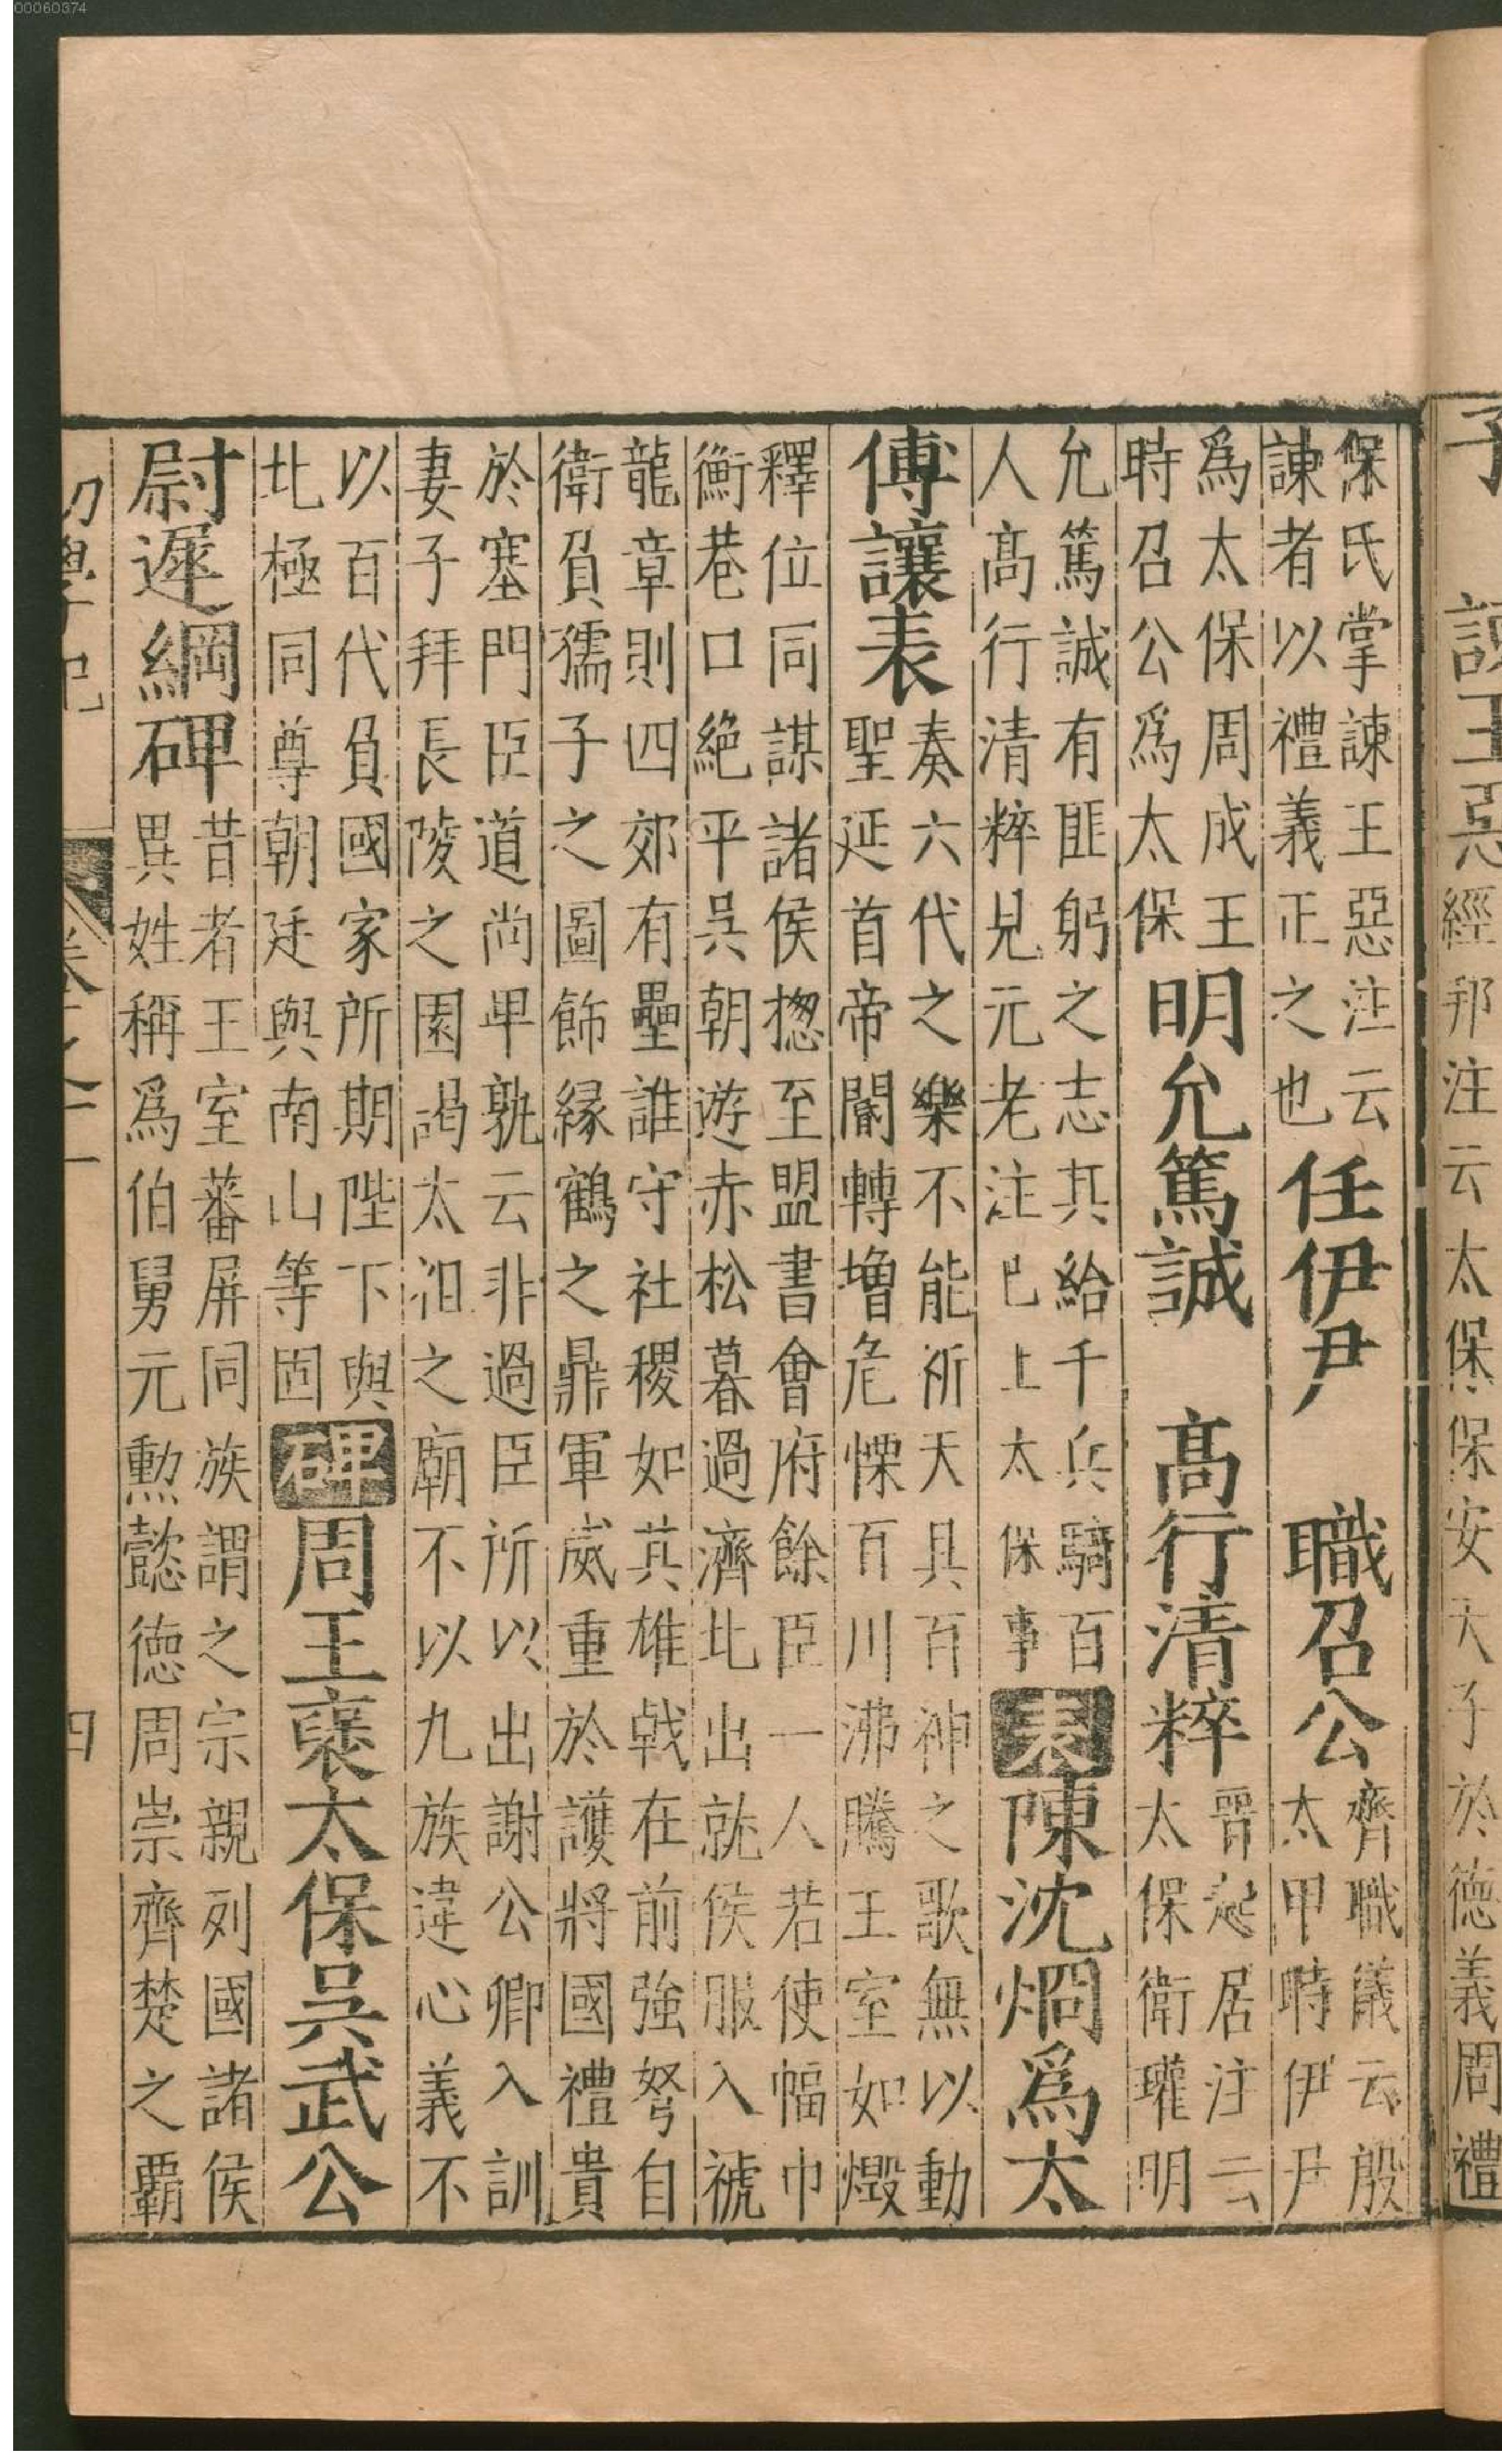 00060374
諫王惡
經邦注云太保保安天子於德義周禮
保氏掌諫王惡注云
諫者以禮義正之也
任伊尹 職召公
齊職儀云殷
太甲時伊尹
爲太保周成王
時召公爲太保
明允篤誠 高行清粹
晉起居注云
太保衛瓘明
允篤誠有匪躬之志其給千兵騎百
人高行清粹見元老注巳上太保事
表
陳沈炯爲太
傅讓表
奏六代之樂不能祈天具百神之歌無以動
聖延首帝閽轉增危慄百川沸騰王室如燬
釋位同謀諸侯揔至盟書會府餘臣一人若使幅巾
衡巷口絕平吳朝遊赤松暮過濟北出就侯服入褫
龍章則四郊有壘誰守社稷如其雄戟在前強弩自
衛負孺子之圖飾緣鶴之鼎軍威重於護將國禮貴
於塞門臣道尚卑孰云非過臣所以出謝公卿入訓
妻子拜長陵之園謁太沮之廟不以九族違心義不
以百代負國家所期陛下與
北極同尊朝廷與南山等固
碑
周王褒太保吳武公
尉遲綱碑
昔者王室蕃屏同族謂之宗親列國諸侯
異姓稱爲伯舅元勳懿德周崇齊楚之覇
初學記
四